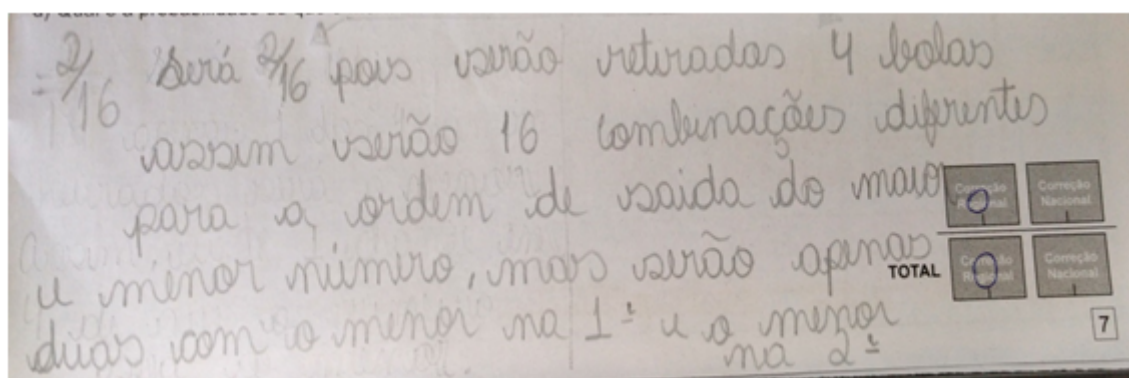 = 2/16 Será 2/16 pois serão retiradas 4 bolas
assim serão 16 combinações diferentes
para a ordem de saida do maior
e menor número, mas serão apenas
duas com o menor na 1ª e o menor
na 2ª
Correção Regional
Correção Nacional
TOTAL
Correção Regional
Correção Nacional
7